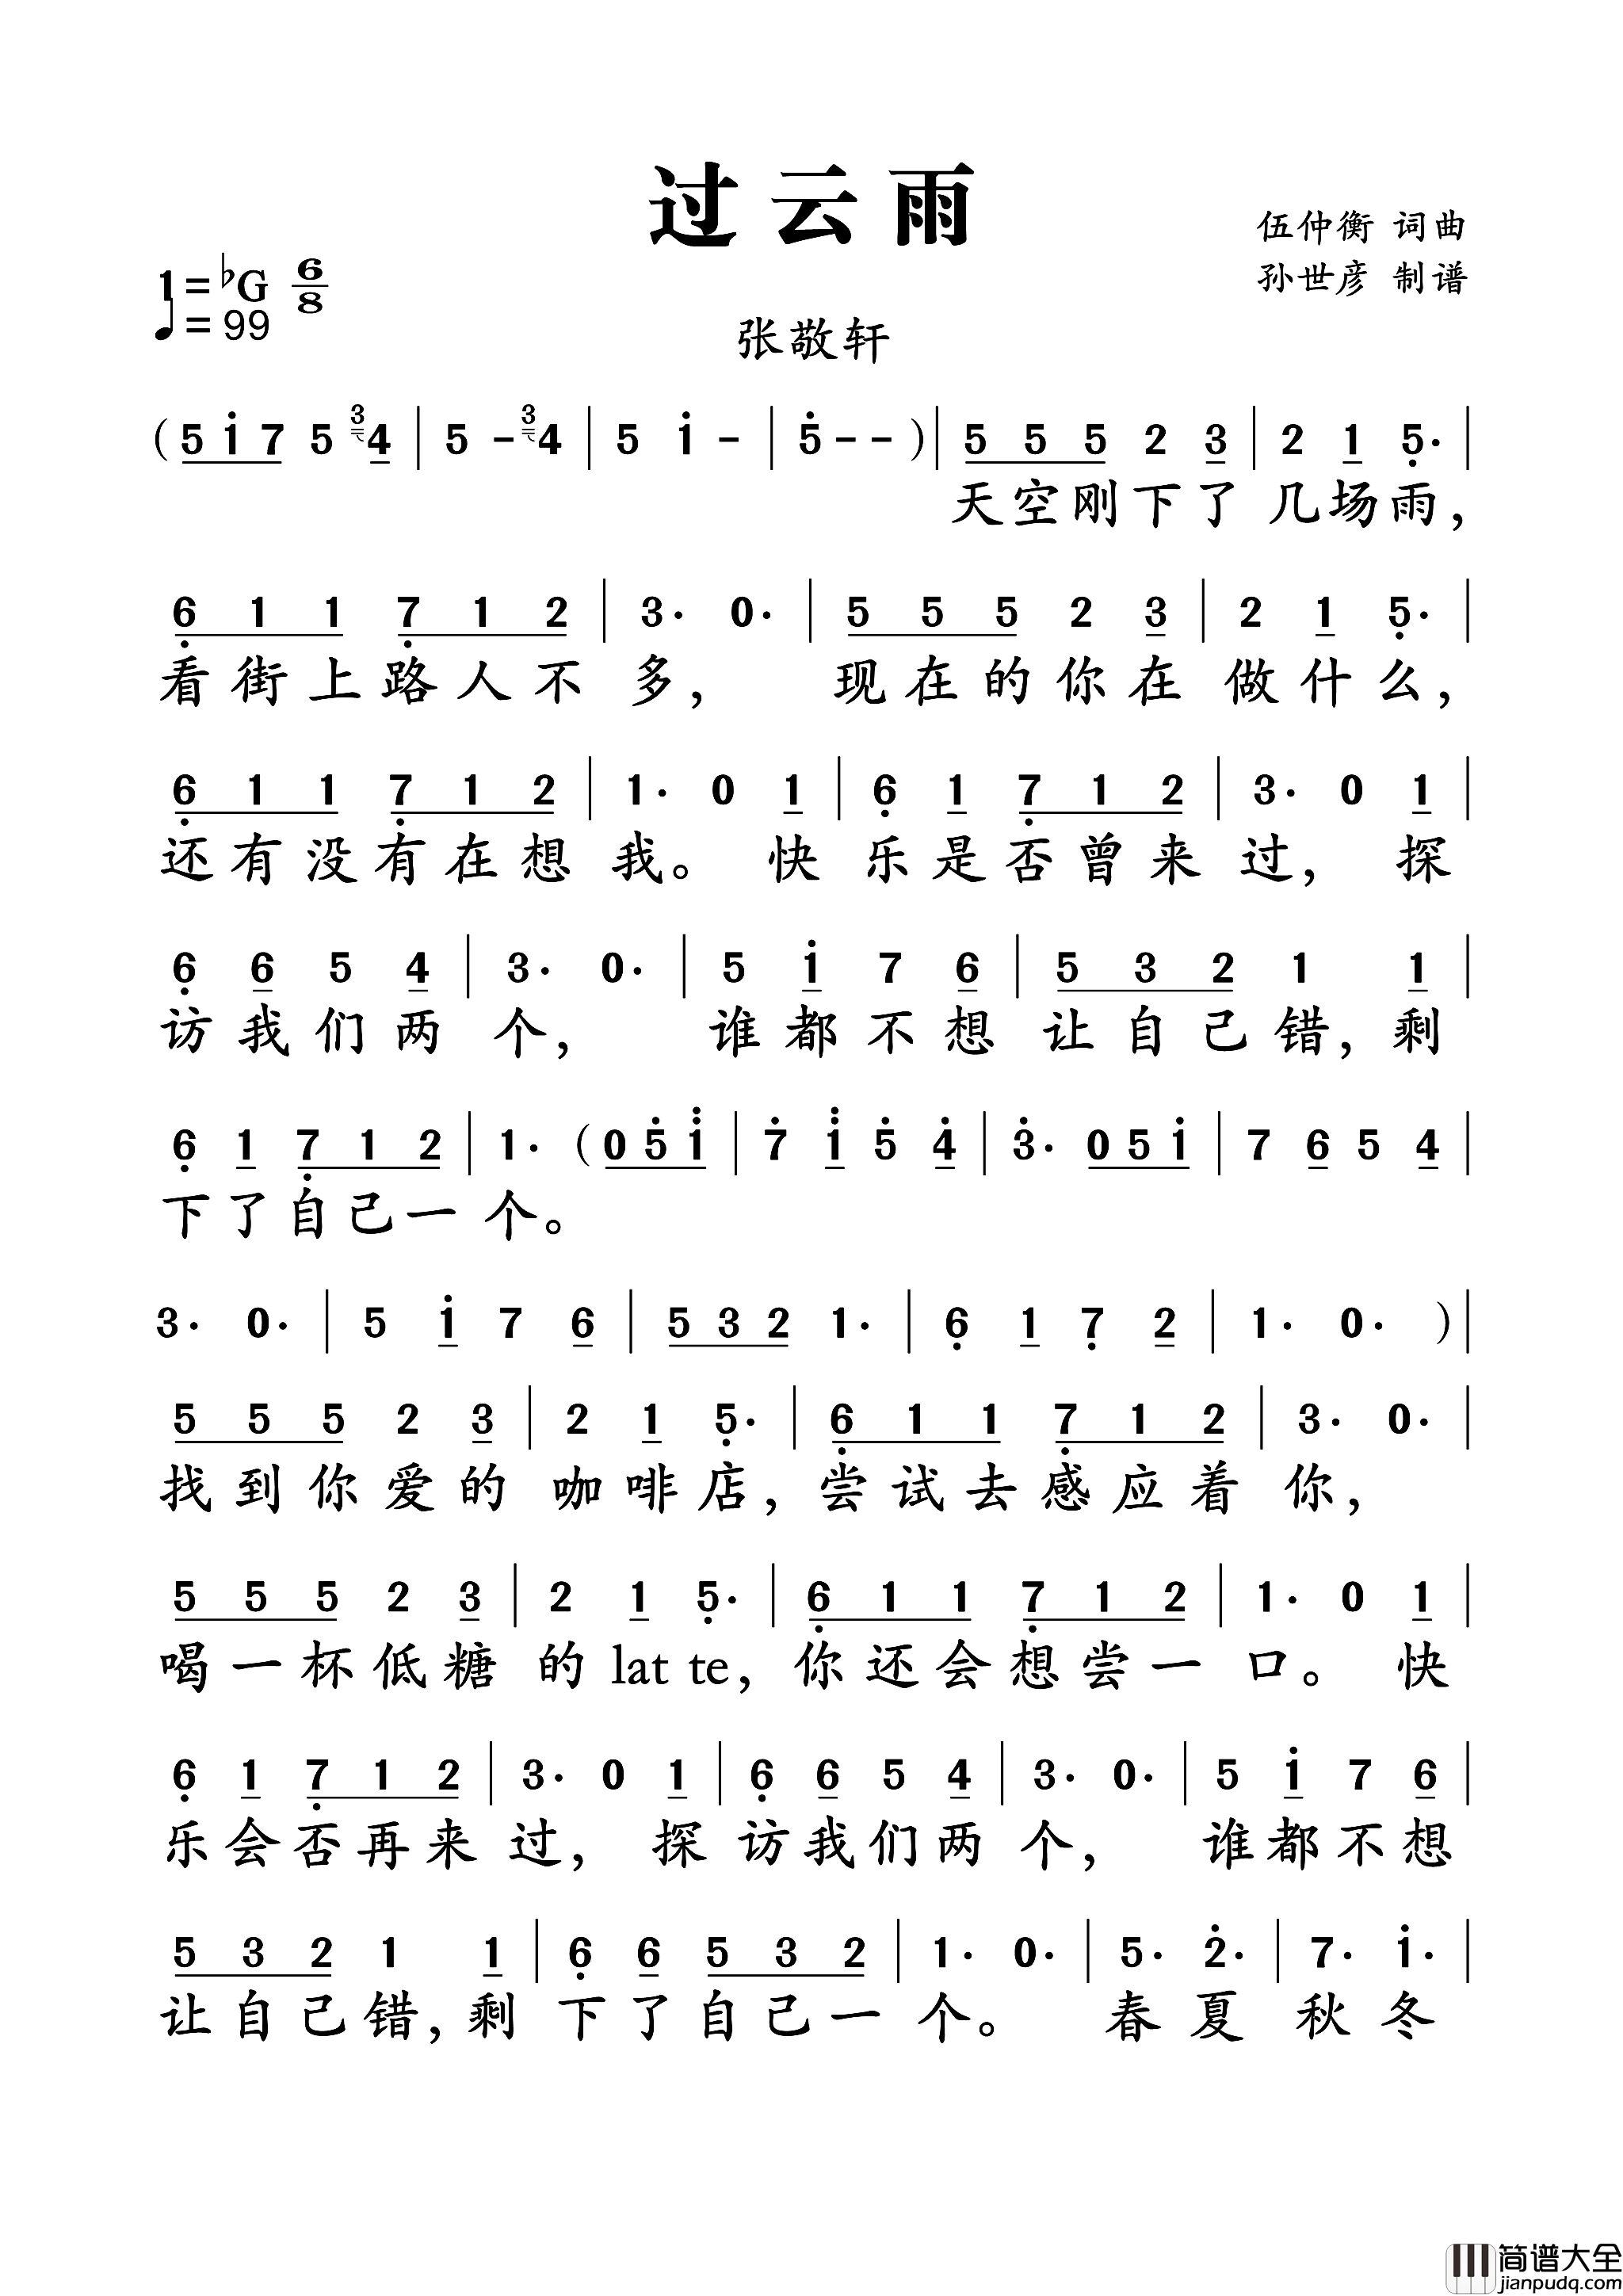 过云雨
伍仲衡 词曲
孙世彦 制谱
1=♭G 6/8
♩=99
张敬轩
( 5 i 7 5 3 4 | 5 - 3 4 | 5 i - | 5̇ - - ) | 5 5 5 2 3 | 2 1 5̣· |
天空刚下了 几场雨，
6̣ 1 1 7̣ 1 2 | 3· 0· | 5 5 5 2 3 | 2 1 5̣· |
看街上路人不 多， 现在的你在 做什么，
6̣ 1 1 7̣ 1 2 | 1· 0 1 | 6̣ 1 7̣ 1 2 | 3· 0 1 |
还有没有在想 我。 快 乐是否曾来 过， 探
6̣ 6 5 4 | 3· 0· | 5 i 7 6 | 5 3 2 1 1 |
访我们两 个， 谁都不想 让自己错，剩
6̣ 1 7̣ 1 2 | 1· ( 0 5̇ 1̈ | 7̇ 1̈ 5̇ 4̇ | 3̇· 0 5 i | 7 6 5 4 |
下了自己一 个。
3· 0· | 5 i 7 6 | 5 3 2 1· | 6̣ 1 7̣ 2 | 1· 0· ) |
5 5 5 2 3 | 2 1 5̣· | 6̣ 1 1 7̣ 1 2 | 3· 0· |
找到你爱的 咖啡店，尝试去感应着 你，
5 5 5 2 3 | 2 1 5̣· | 6̣ 1 1 7̣ 1 2 | 1· 0 1 |
喝一杯低糖 的lat te，你还会想尝一 口。 快
6̣ 1 7̣ 1 2 | 3· 0 1 | 6̣ 6 5 4 | 3· 0· | 5 i 7 6 |
乐会否再来 过， 探 访我们两 个， 谁都不想
5 3 2 1 1 | 6̣ 6 5 3 2 | 1· 0· | 5· 2̇· | 7· i· |
让自己错，剩 下了自己一 个。 春夏 秋冬
简谱大全
jianpudq.com